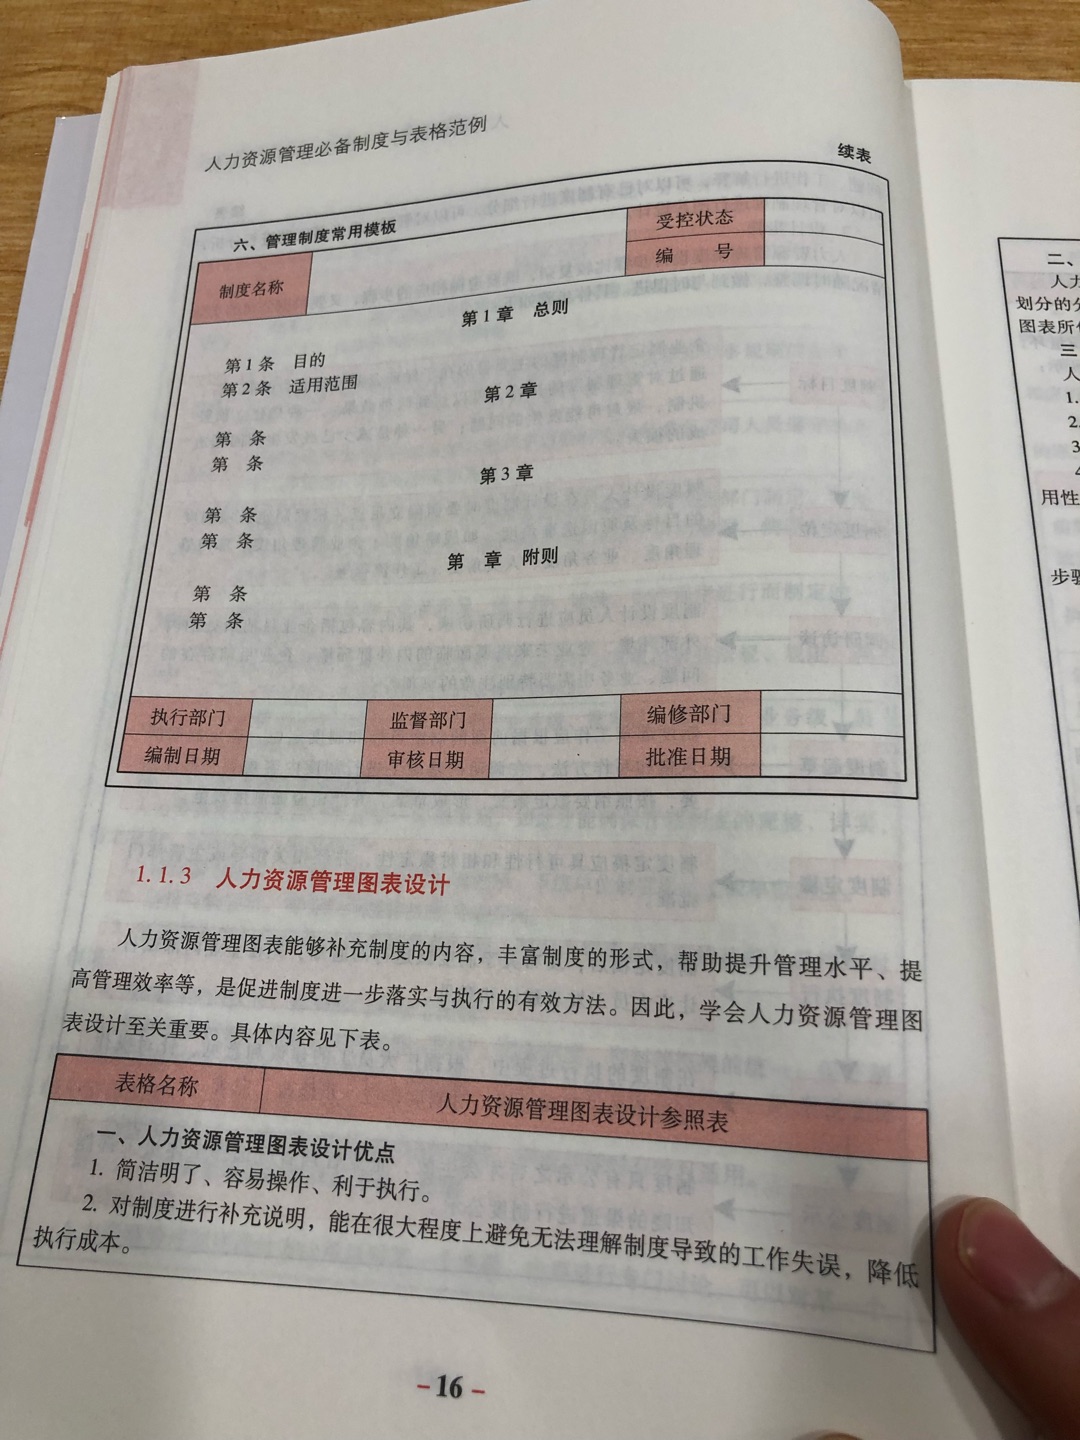 人力资源管理必备制度与表格范例
续表
六、管理制度常用模板
制度名称
受控状态
编 号
第1章 总则
第1条 目的
第2条 适用范围
第2章
第 条
第 条
第3章
第 条
第 条
第 章 附则
第 条
第 条
执行部门 监督部门 编修部门
编制日期 审核日期 批准日期
1.1.3 人力资源管理图表设计
人力资源管理图表能够补充制度的内容，丰富制度的形式，帮助提升管理水平、提
高管理效率等，是促进制度进一步落实与执行的有效方法。因此，学会人力资源管理图
表设计至关重要。具体内容见下表。
表格名称 人力资源管理图表设计参照表
一、人力资源管理图表设计优点
1. 简洁明了、容易操作、利于执行。
2. 对制度进行补充说明，能在很大程度上避免无法理解制度导致的工作失误，降低
执行成本。
-16-
二、
人力
划分的分
图表所
三
人
1.
2.
3
4
用性
步骤